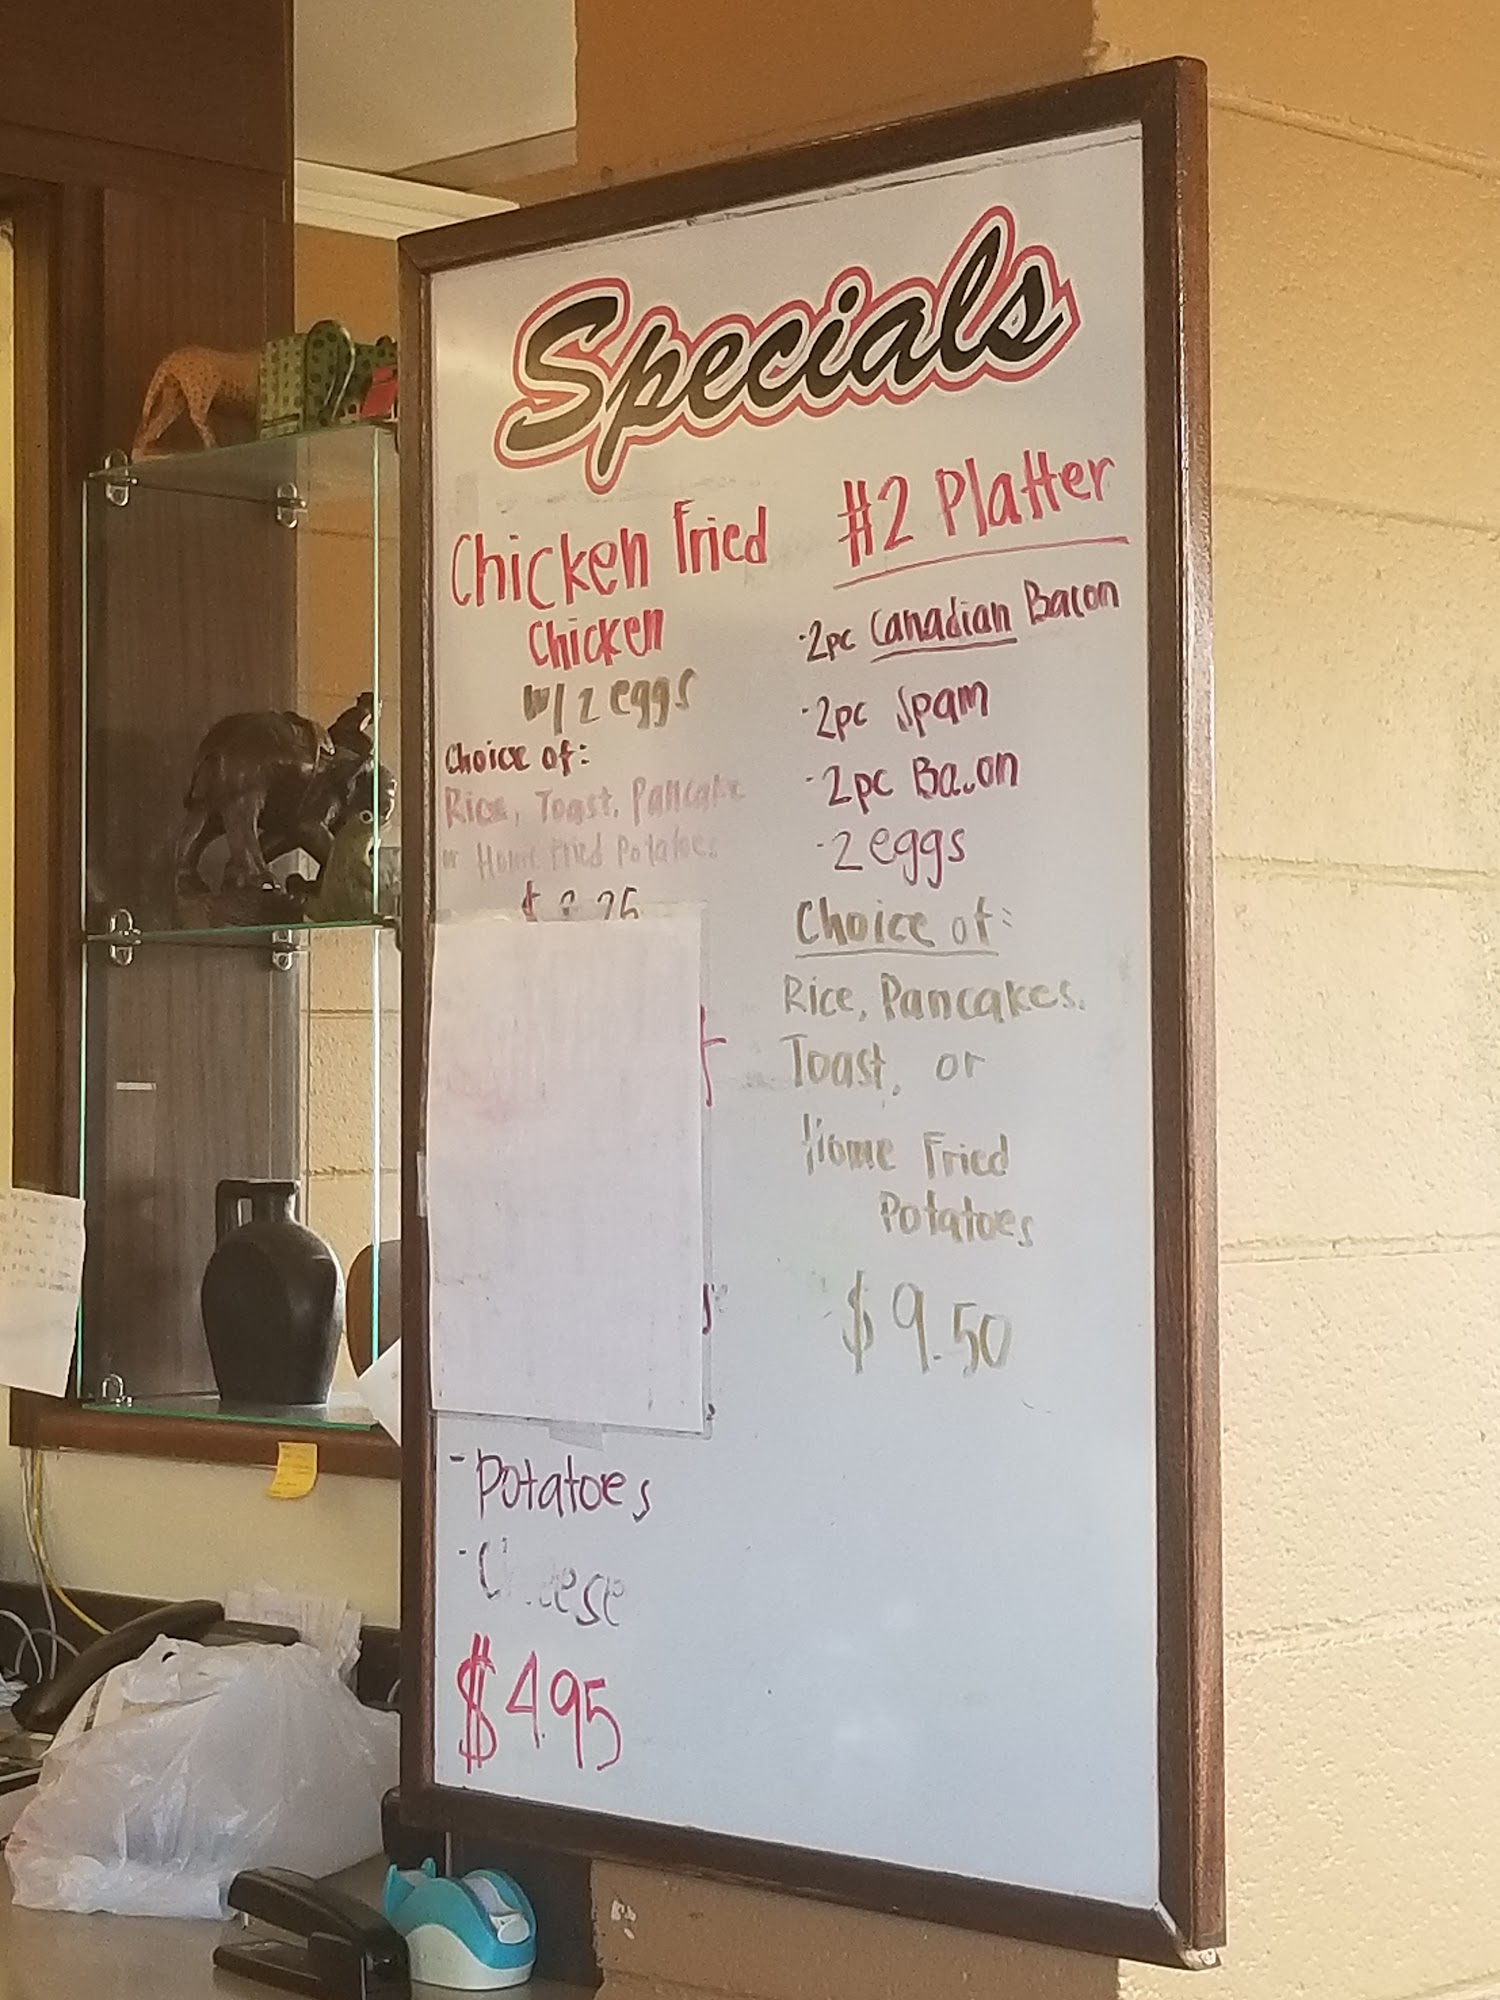 Specials
Chicken Fried
Chicken
w/ 2 eggs
Choice of:
Rice, Toast, Pancake
or Home Fried Potatoes
- Potatoes
- Cheese
$4.95
#2 Platter
·2pc Canadian Bacon
·2pc Spam
·2pc Bacon
·2 eggs
Choice of:
Rice, Pancakes,
Toast, or
Home Fried
Potatoes
$9.50